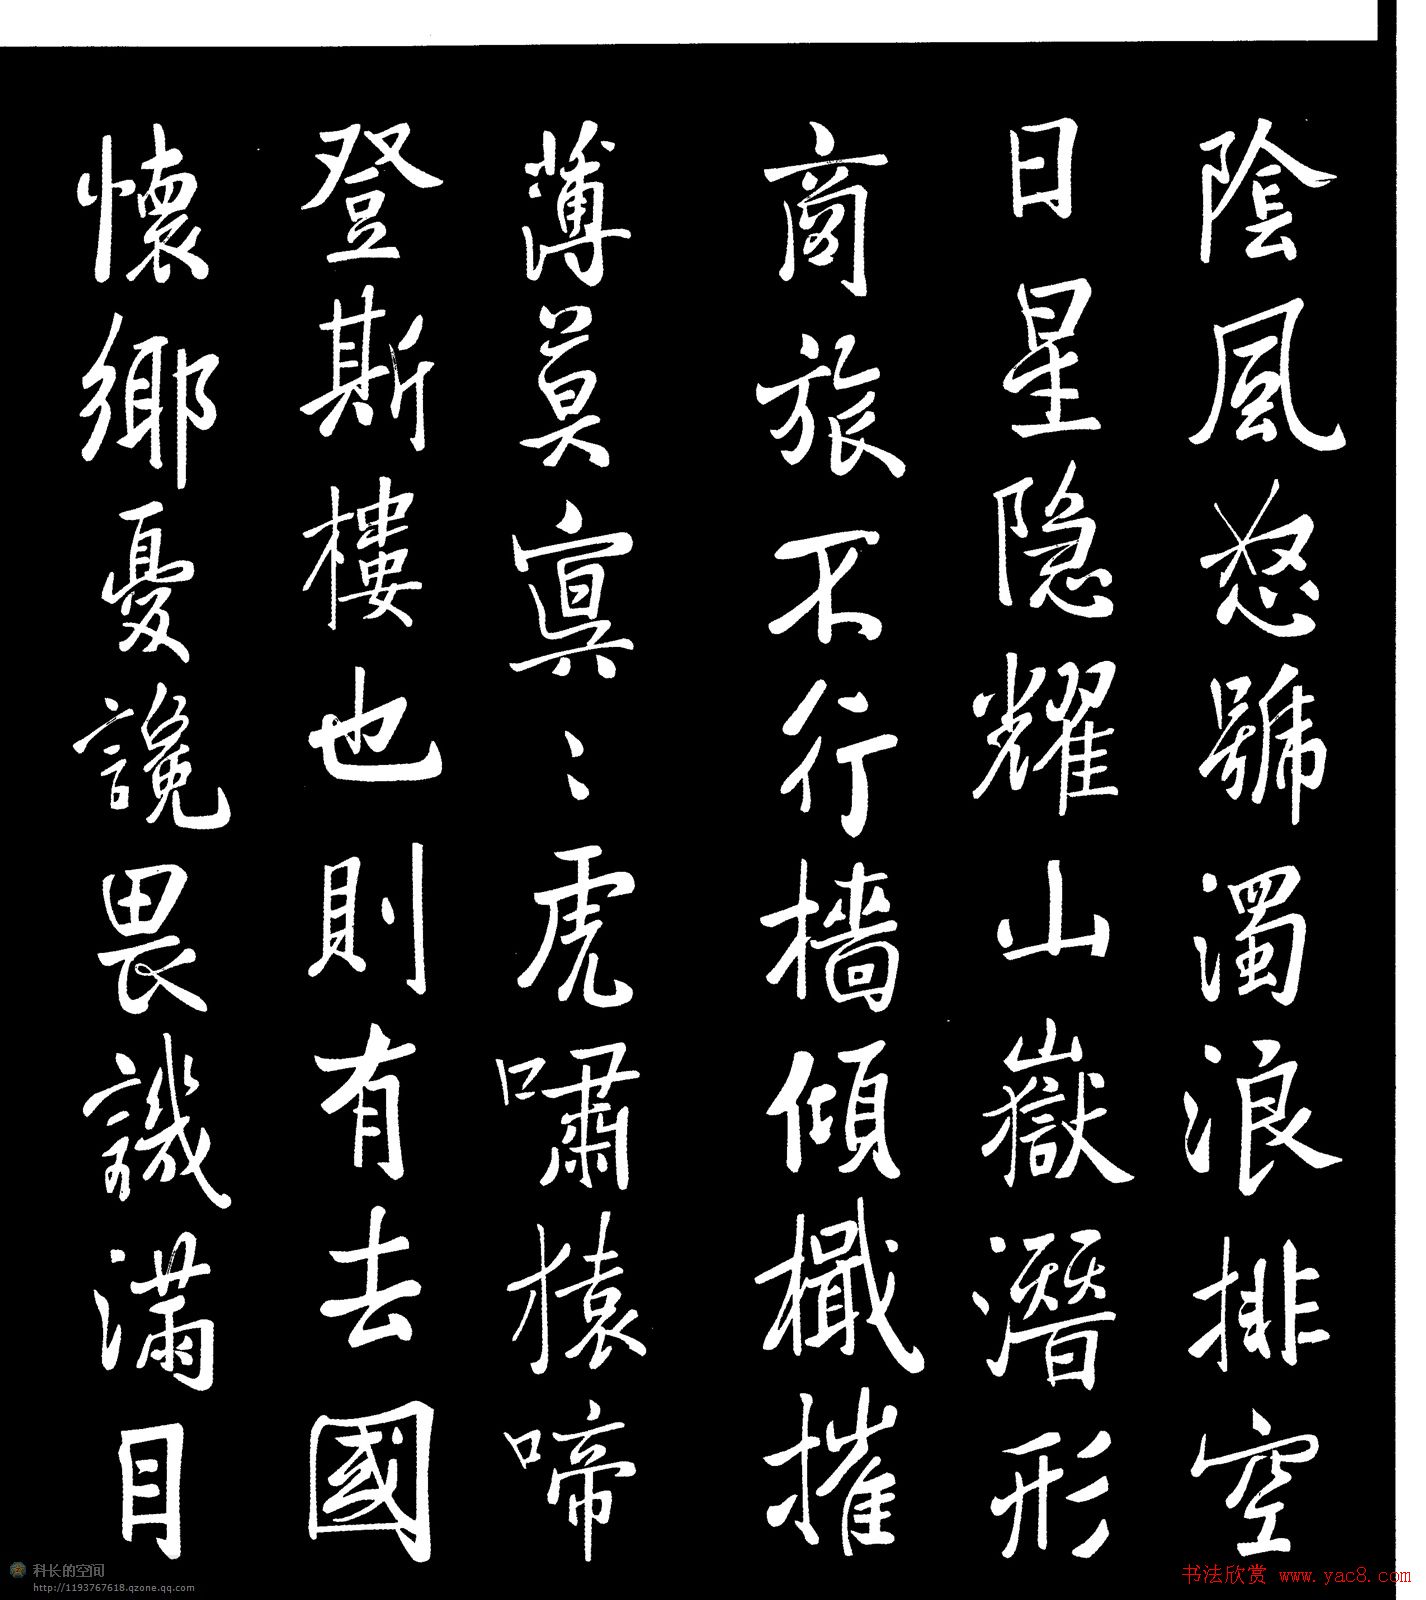 陰風怒號濁浪排空
日星隐耀山嶽潛形
商旅不行檣傾檝摧
薄莫㝠〻虎嘯猿啼
登斯樓也則有去國
懷鄉憂讒畏譏滿目
科长的空间
http://1193767618.qzone.qq.com
书法欣赏 www.yac8.com